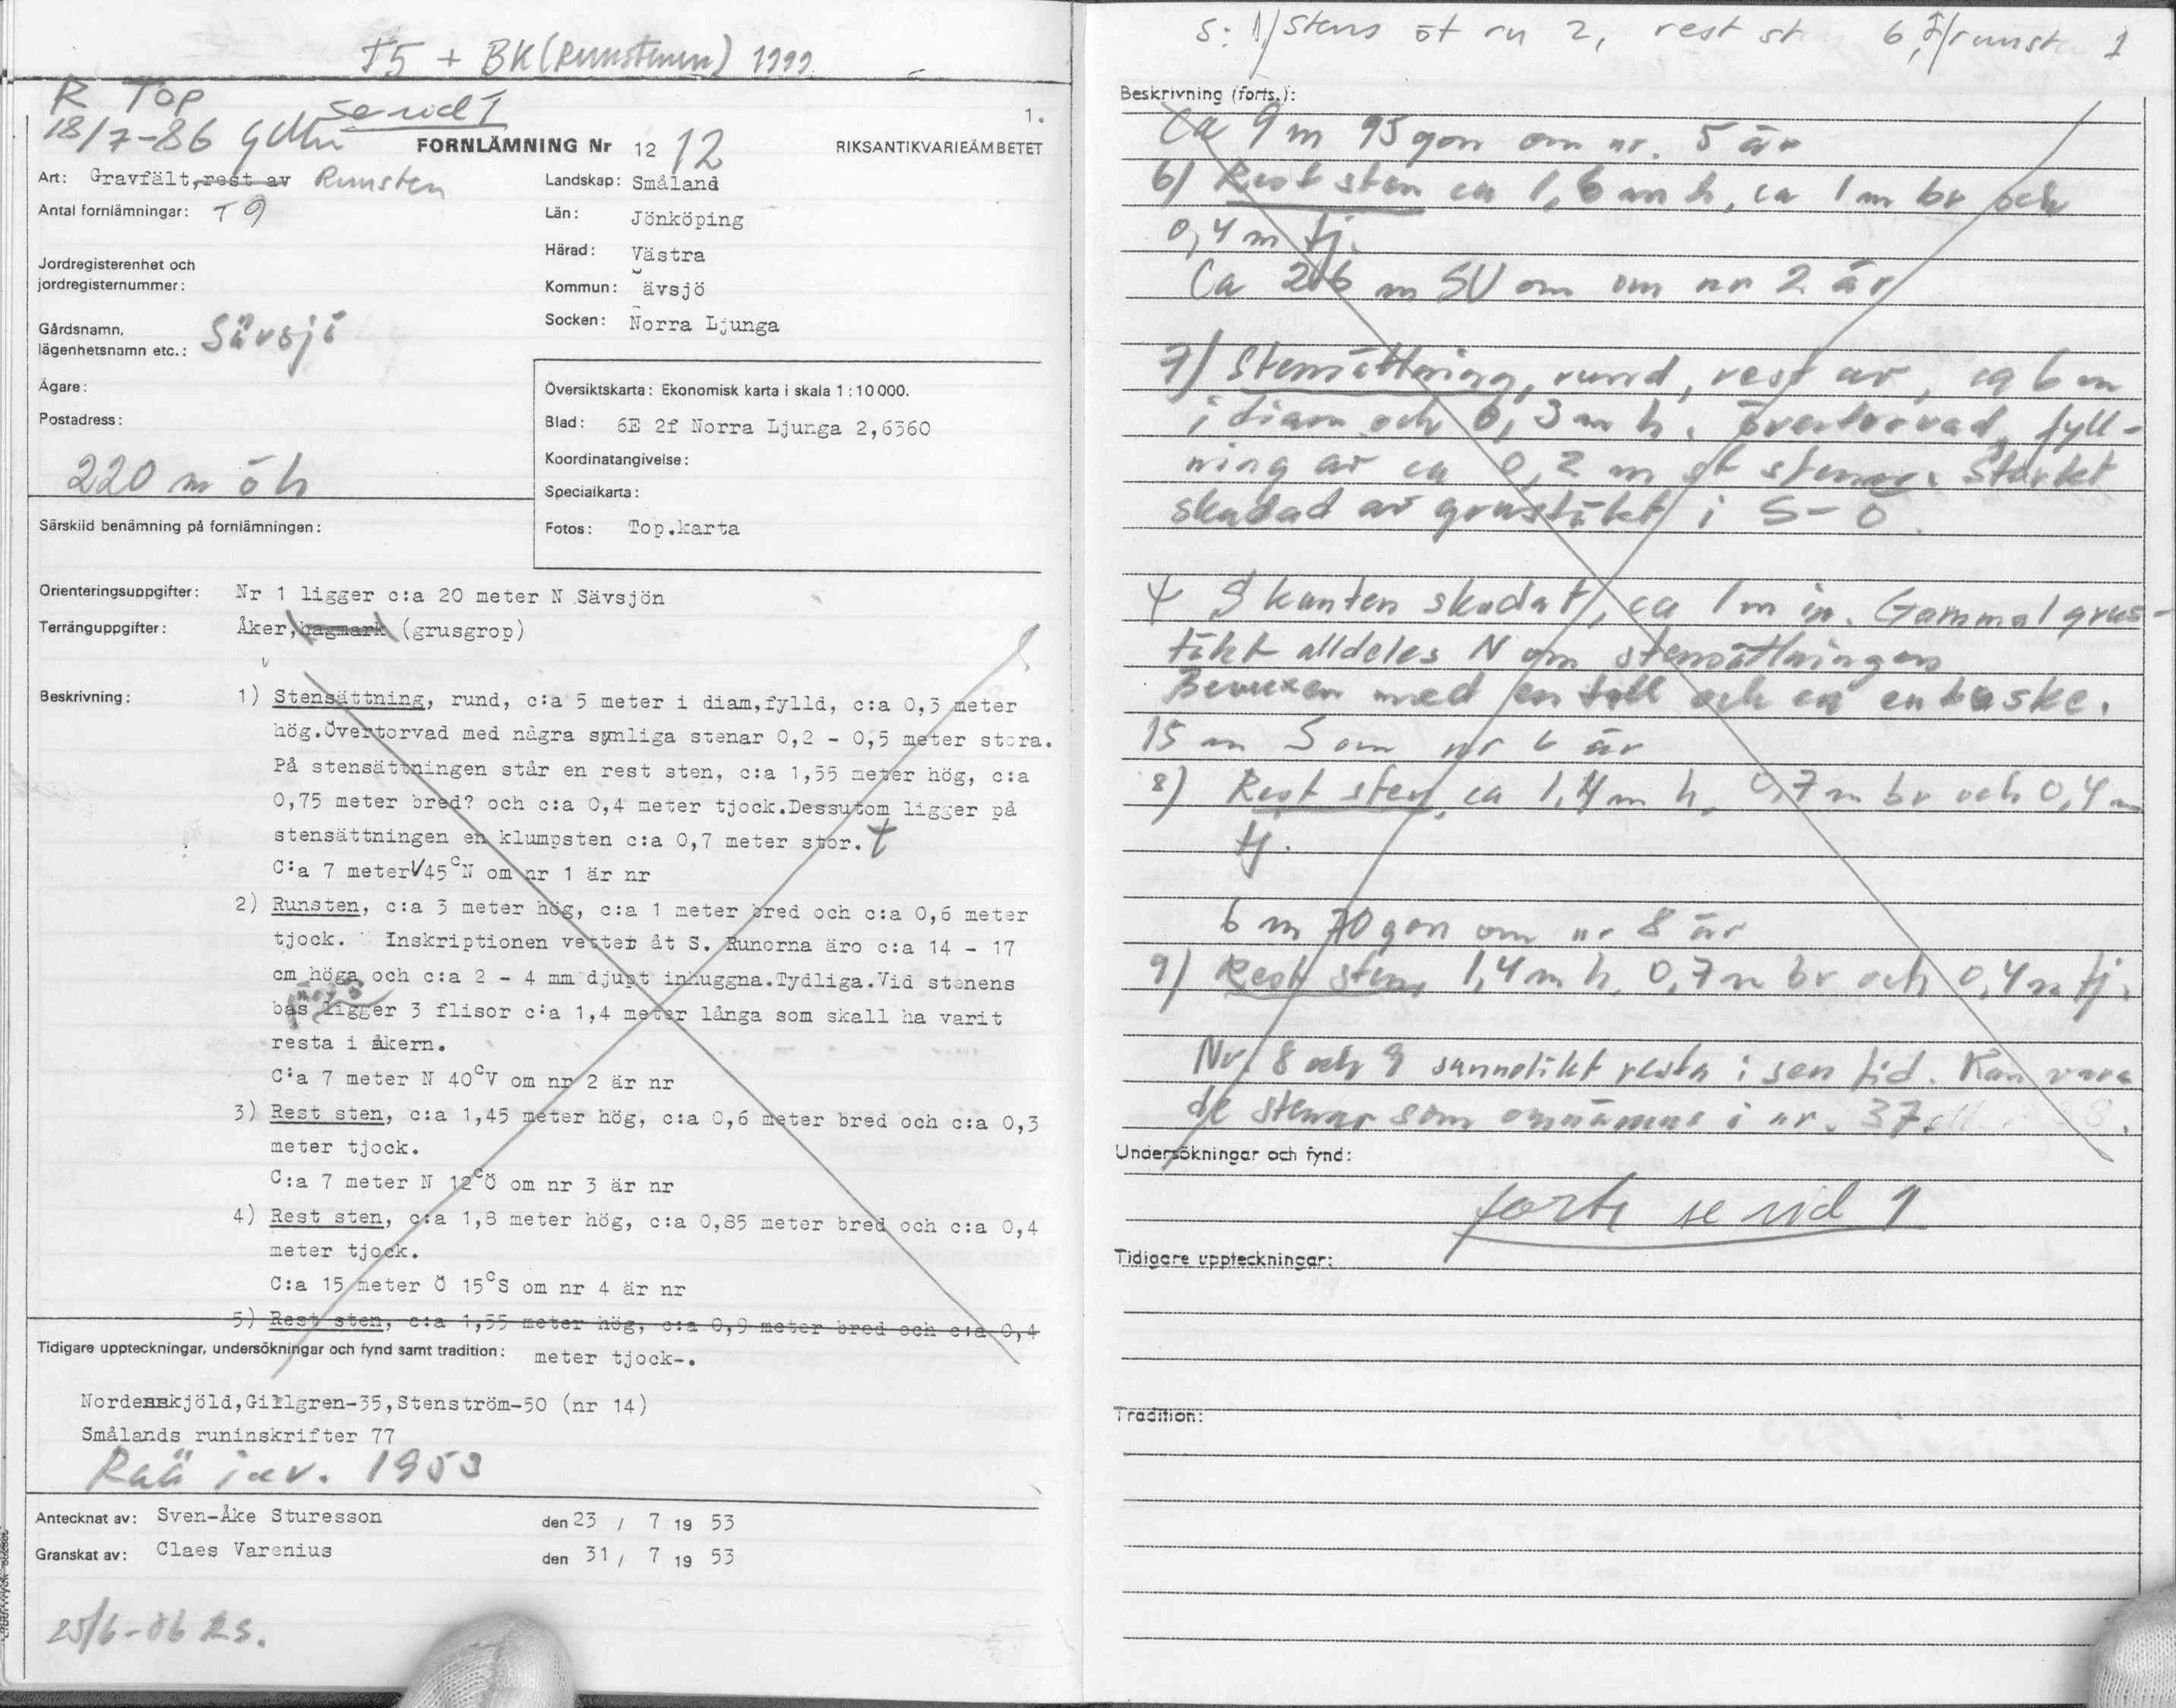 T5 + BK (Runstenen) 1999
R TOP
se sid 1
18/7-86
1.
FORNLÄMNING Nr 12 12
RIKSANTIKVARIEÄMBETET
Art: Gravfält, rest av Runsten
Antal fornlämningar: T 9
Jordregisterenhet och
jordregisternummer:
Gårdsnamn,
lägenhetsnamn etc.: Sävsjö
Ägare:
Postadress:
220 m öh
Särskild benämning på fornlämningen:
Landskap: Småland
Län: Jönköping
Härad: Västra
Kommun: ävsjö
Socken: Norra Ljunga
Översiktskarta: Ekonomisk karta i skala 1:10 000.
Blad: 6E 2f Norra Ljunga 2,6360
Koordinatangivelse:
Specialkarta:
Fotos: Top.karta
Orienteringsuppgifter: Nr 1 ligger c:a 20 meter N Sävsjön
Terränguppgifter: Åker, hagmark (grusgrop)
Beskrivning: 1) Stensättning, rund, c:a 5 meter i diam,fylld, c:a 0,3 meter
hög.Övertorvad med några synliga stenar 0,2 - 0,5 meter stora.
På stensättningen står en rest sten, c:a 1,55 meter hög, c:a
0,75 meter bred? och c:a 0,4 meter tjock.Dessutom ligger på
stensättningen en klumpsten c:a 0,7 meter stor. T
C:a 7 meter V45°N om nr 1 är nr
2) Runsten, c:a 3 meter hög, c:a 1 meter bred och c:a 0,6 meter
tjock. Inskriptionen vetter åt S. Runorna äro c:a 14 - 17
cm höga och c:a 2 - 4 mm djupt inhuggna.Tydliga.Vid stenens
bas ligger 3 flisor c:a 1,4 meter långa som skall ha varit
resta i åkern.
C:a 7 meter N 40°V om nr 2 är nr
3) Rest sten, c:a 1,45 meter hög, c:a 0,6 meter bred och c:a 0,3
meter tjock.
C:a 7 meter N 12°Ö om nr 3 är nr
4) Rest sten, c:a 1,8 meter hög, c:a 0,85 meter bred och c:a 0,4
meter tjock.
C:a 15 meter Ö 15°S om nr 4 är nr
5) Rest sten, c:a 1,55 meter hög, c:a 0,9 meter bred och c:a 0,4
Tidigare uppteckningar, undersökningar och fynd samt tradition: meter tjock-.
Nordenskjöld,Gillgren-35,Stenström-50 (nr 14)
Smålands runinskrifter 77
Raä inv. 1953
Antecknat av: Sven-Åke Sturesson den 23 / 7 19 53
Granskat av: Claes Varenius den 31 / 7 19 53
25/6-86 RS.
S: 1/ Stens öt ru 2, rest st 6, runst 1
Beskrivning (forts.):
Ca 9 m 95 gon om nr. 5 är
6) Rest sten ca 1,6 m h, ca 1 m br och
0,4 m tj.
Ca 206 m SV om om nr 2 är
7) Stensättning, rund, rest av, ca 6 m
i diam och 0,3 m h. Övertorvad, fyll-
ning av ca 0,2 m st stenar. Starkt
skadad av grustäkt i S-Ö.
T S kanten skadat, ca 1 m in. Gammal grus-
täkt alldeles N om stensättningen
Bevuxen med en tall och en enbuske.
15 m S om nr 6 är
8) Rest sten, ca 1,4 m h, 0,7 m br och 0,4 m
tj.
6 m 70 gon om nr 8 är
9) Rest sten, 1,4 m h, 0,7 m br och 0,4 m tj.
Nr 8 och 9 sannolikt resta i sen tid. Kan vara
de stenar som omnämns i nr. 37
Undersökningar och fynd:
forts se sid 1
Tidigare uppteckningar:
Tradition: